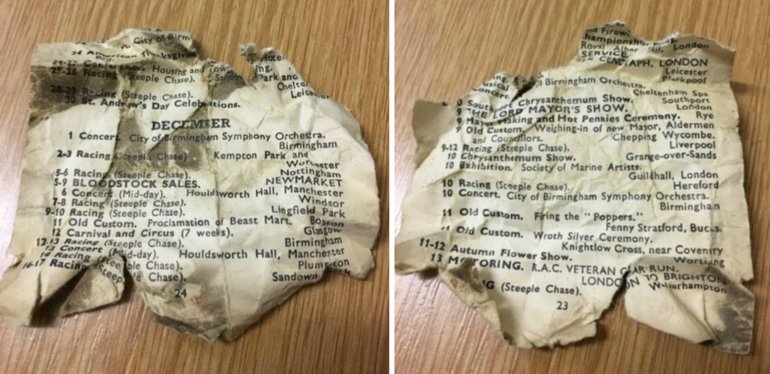 City of Birm
24 American Thanksgiving
24-27 Conference. Housing and Town
25-26 Racing (Steeple Chase). Sand
Park and
Chelte
28-29 Racing (Steeple Chase). Leic
30 St. Andrew's Day Celebrations.
DECEMBER
1 Concert. City of Birmingham Symphony Orchestra.
Birmingham
2-3 Racing (Steeple Chase) Kempton Park and
Worcester
5-6 Racing (Steeple Chase). Nottingham
5-9 BLOODSTOCK SALES. NEWMARKET
6 Concert (Mid-day). Houldsworth Hall, Manchester
7-8 Racing (Steeple Chase). Windsor
9-10 Racing (Steeple Chase). Lingfield Park
11 Old Custom. Proclamation of Beast Mart. Boston
12 Carnival and Circus (7 weeks). Glasgow
12-13 Racing (Steeple Chase). Birmingham
13 Concert (Mid-day). Houldsworth Hall, Manchester
14 Racing (Steeple Chase). Plumpton
16-17 Racing (Steeple Chase). Sandown
(Steeple Chase).
24
nd Firew
hampionship
Royal Albert Hall, London
SERVICE.
CENOTAPH, LONDON
Leicester
Blackpool
Birmingham Orchestra.
Concert
Cheltenham Spa
Southport Chrysanthemum Show. Southport
9 THE LORD MAYOR'S SHOW. London
9 Major Making and Hot Pennies Ceremony. Rye
9 Old Custom. Weighing-in of new Mayor, Aldermen
and Councillors. Chepping Wycombe.
9-12 Racing (Steeple Chase). Liverpool
10 Chrysanthemum Show. Grange-over-Sands
10 Exhibition. Society of Marine Artists.
Guildhall, London
10 Racing (Steeple Chase). Hereford
10 Concert. City of Birmingham Symphony Orchestra.
Birmingham
11 Old Custom. Firing the "Poppers."
Fenny Stratford, Bucks.
11 Old Custom. Wroth Silver Ceremony.
Knightlow Cross, near Coventry
11-12 Autumn Flower Show. Worthing
13 MOTORING. R.A.C. VETERAN CAR RUN.
LONDON TO BRIGHTON
G (Steeple Chase). Wolverhampton
23